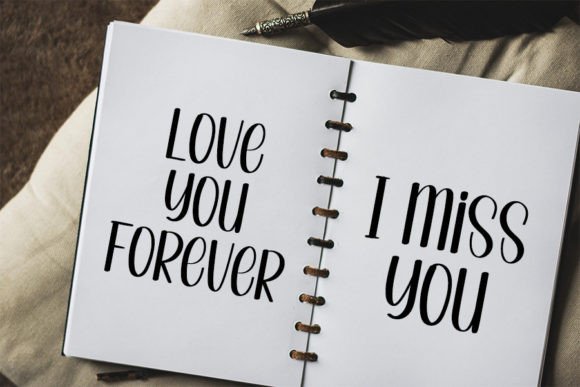 LOVE
YOU
FOREVER
I MISS
YOU